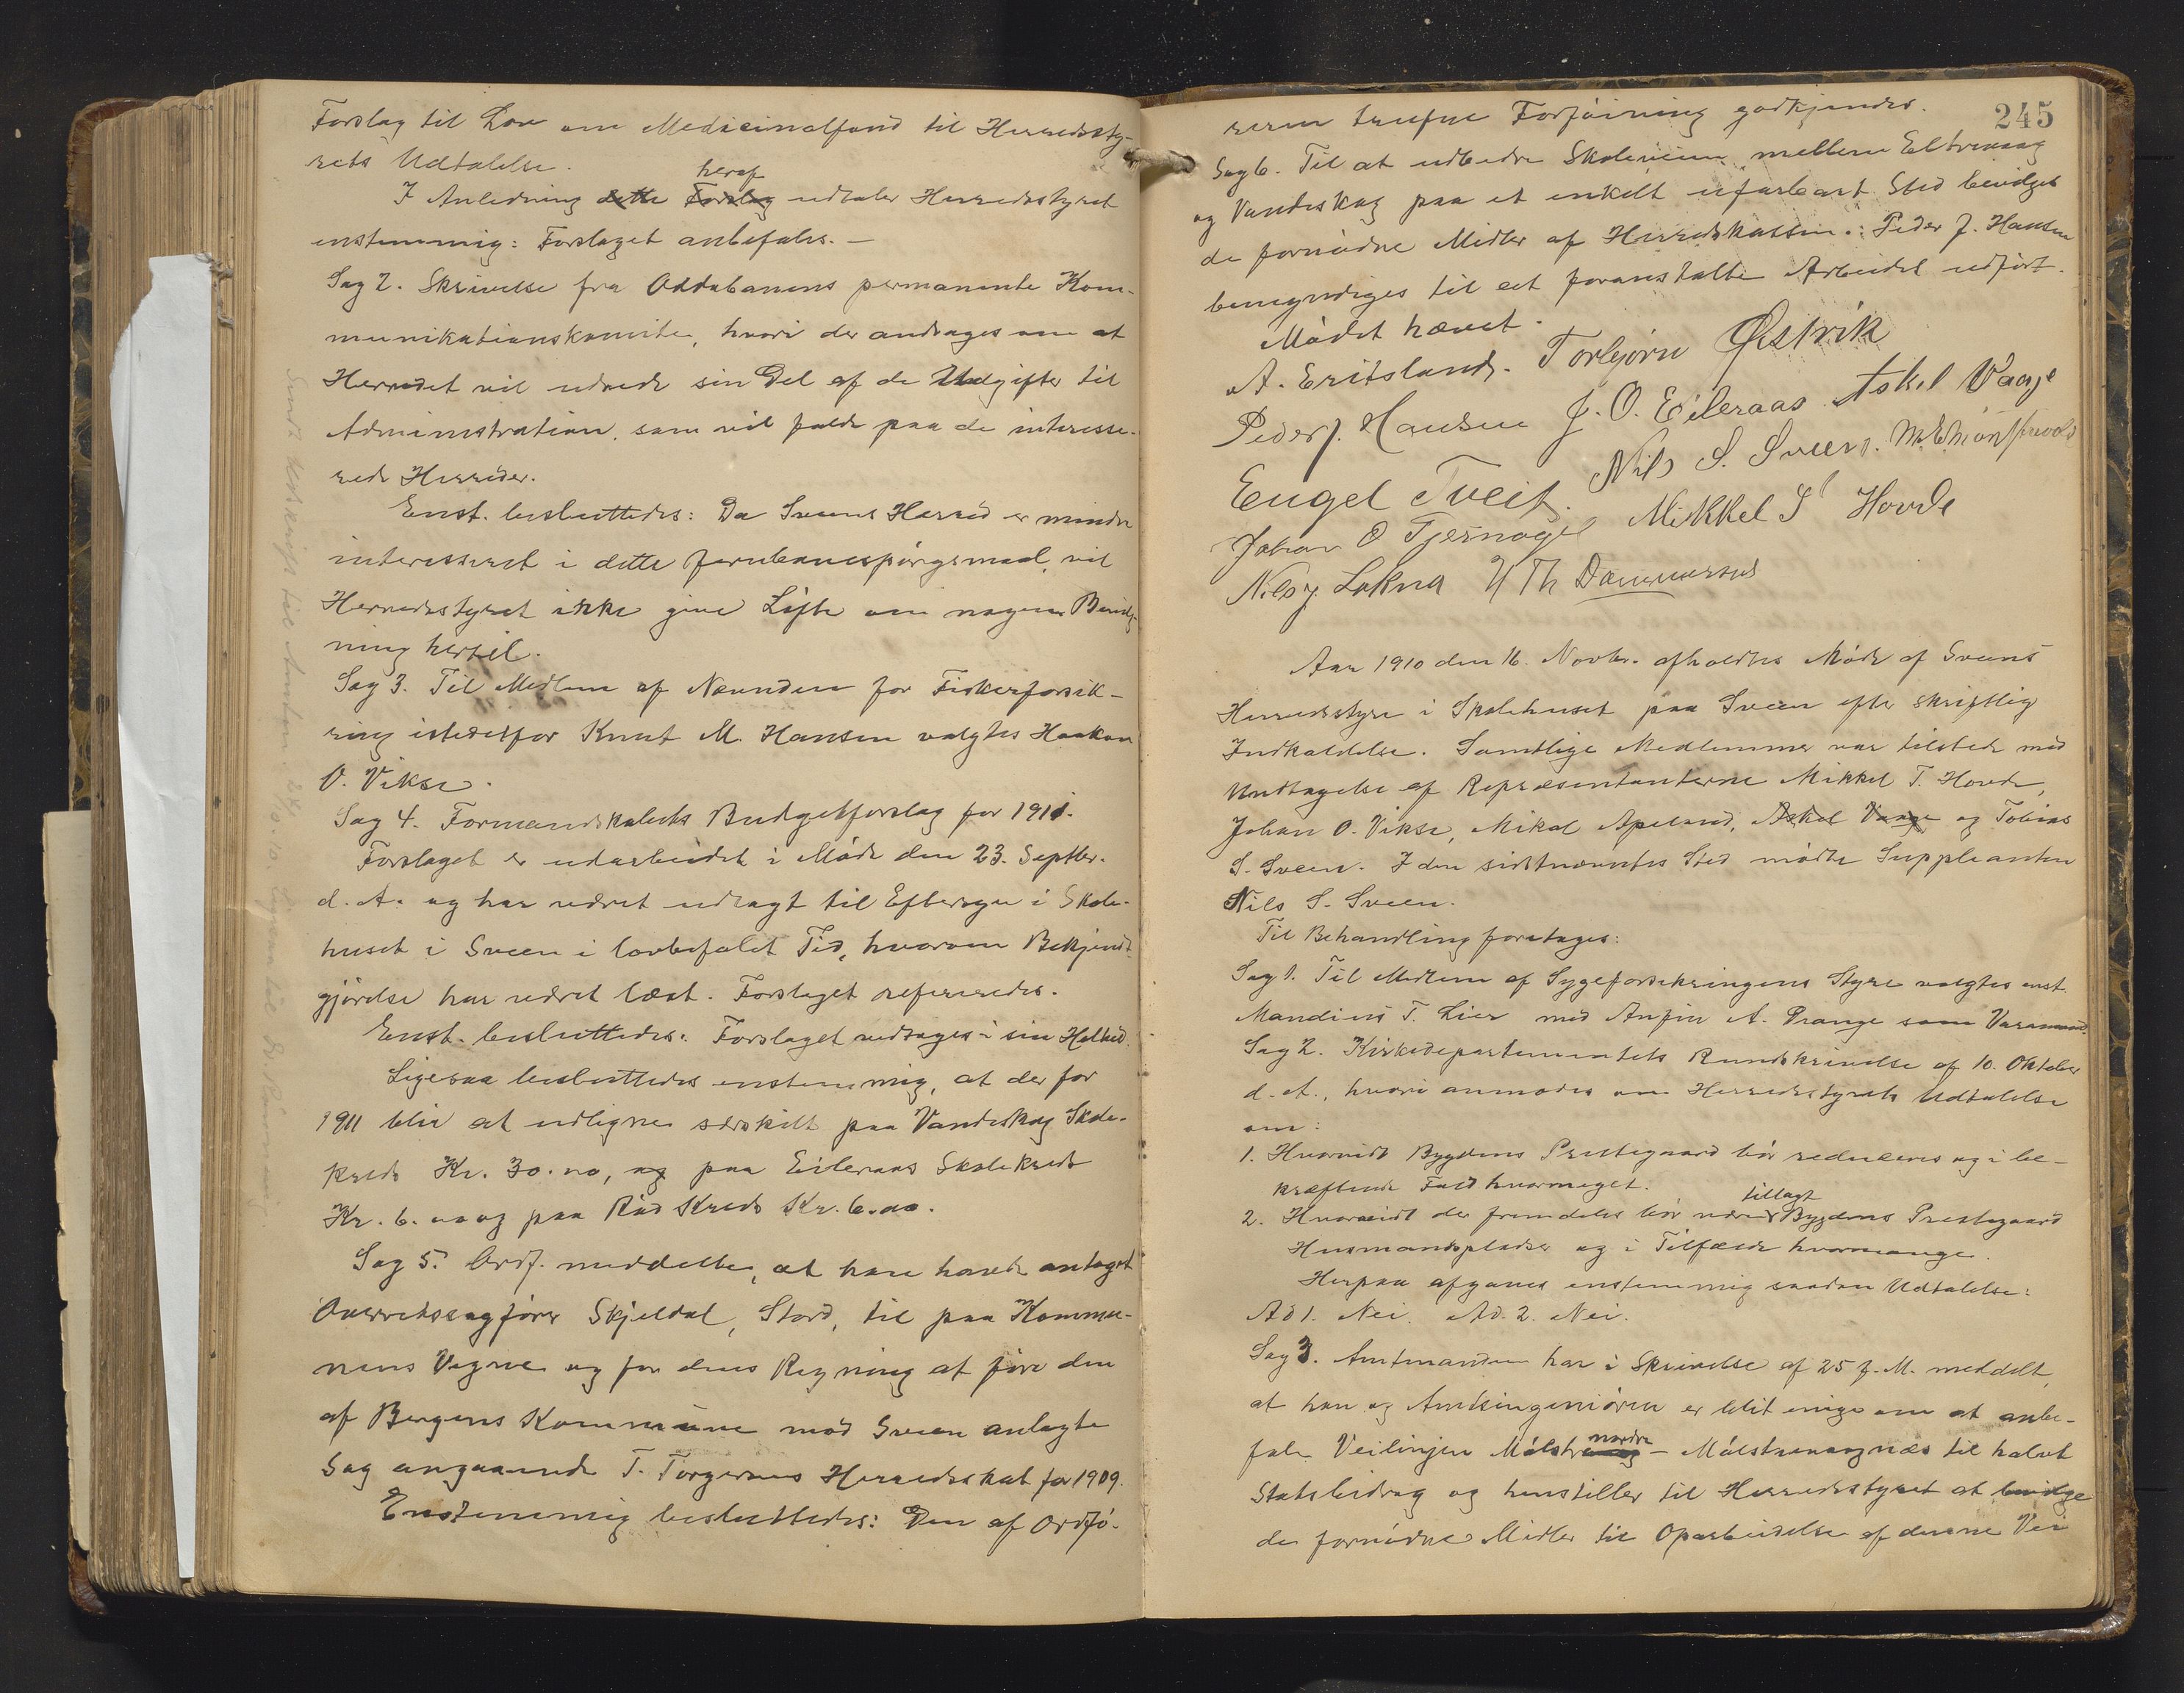 Forslag til Lov om Medicinalfond til Herredssty-
rets Udtalelse.
heraf
I Anledning dette Forslag udtaler Herredsstyret
enstemmig: Forslaget anbefales. —
Sag 2. Skrivelse fra Oddabanens permanente Kom-
munikationskomite, hvori der andrages om at
Herredet vil udrede sin Del af de Udgifter til
Administration, som vil falde paa de interesse-
rede Herreder.
Enst. besluttedes: Da Sveens Herred er mindre
interesseret i dette Jernbanespørgsmaal, vil
Herredsstyret ikke give Løfte om nogen Bevilg-
ning hertil.
Sag 3. Til Medlem af Nævnden for Fiskerforsik-
ring istedetfor Knut M. Hansen valgtes Haakon
O. Vikse.
Sag 4. Formandskabets Budgetforslag for 1911.
Forslaget er udarbeidet i Møde den 23. Septbr.
d. A. og har været udlagt til Eftersyn i Skole-
huset i Sveen i lovbefalet Tid, hvorom Bekjendt-
gjørelse har været læst. Forslaget refereredes.
Enst. besluttedes: Forslaget vedtages i sin Helhed.
Ligesaa besluttedes enstemmig, at der for
1911 blir at udligne særskilt paa Vandeskog Skole-
kreds Kr. 30.00, og paa Eileraas Skolekreds
Kr. 6.00 og paa Rød Kreds Kr. 6.00.
Sag 5. Ordf. meddelte, at han havde antaget
Overretssagfører Skjeldal, Stord, til paa Kommu-
nens Vegne og for dens Regning at føre den
af Bergens Kommune mod Sveen anlagte
Sag angaaende T. Torgersens Herredsskat for 1909.
Enstemmig besluttedes: Den af Ordfø-
245
reren trufne Forføining godkjendes.
Sag 6. Til at udbedre Skoleveien mellem Eltrevaag
og Vandeskog paa et enkelt ufarbart Sted bevilges
de fornødne Midler af Herredskassen. Peder J. Hansen
bemyndiges til at foranstalte Arbeidet udført.
Mødet hævet.
A. Eritsland. Torbjørn Østvik
Peder J. Hansen J. O. Eileraas Askel Vaage
Engel Tveit. Nils S. Sveen.
Johan O Tjernagel Mikkel T Hovde
Nils J. Lokna
Aar 1910 den 16. Novbr. afholdtes Møde af Sveens
Herredsstyre i Skolehuset paa Sveen efter skriftlig
Indkaldelse. Samtlige Medlemmer var tilstede med
Undtagelse af Repræsentanterne Mikkel T. Hovde,
Johan O. Vikse, Mikal Apeland, Askel Vaage og Tobias
S. Sveen. I den sidstnævntes Sted mødte Suppleanten
Nils S. Sveen.
Til Behandling foretoges:
Sag 1. Til Medlem af Sygeforsikringens Styre valgtes enst.
Mandius T. Lier med Anfin A. Prange som Varamand.
Sag 2. Kirkedepartementets Rundskrivelse af 10. Oktober
d. A., hvori anmodes om Herredsstyrets Udtalelse
om:
1. Hvorvidt Bygdens Prestegaard bør reduceres og i be-
kræftende Fald hvormeget.
tillagt
2. Hvorvidt der fremdeles bør være Bygdens Prestegaard
Husmandspladse og i Tilfælde hvormange.
Herpaa afgaves enstemmig saadan Udtalelse:
Ad 1. Nei. Ad. 2. Nei.
Sag 3. Amtmanden har i Skrivelse af 25 f. M. meddelt,
at han og Amtsingeniøren er blit enige om at anbe-
nordre
fale Veilinjen Mølstrevaag – Mølstrevaagnæs til halvt
Statsbidrag og henstiller til Herredsstyret at bevilge
de fornødne Midler til Oparbeidelse af denne Vei